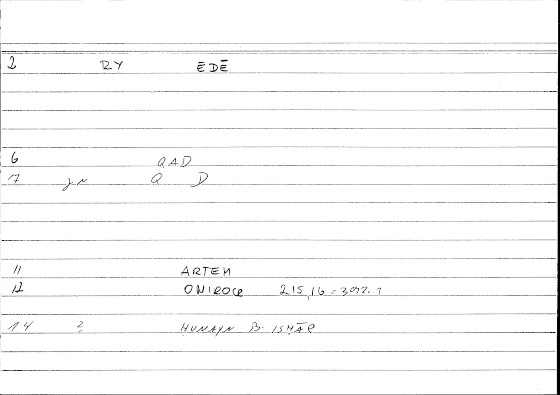 2 RY ĒDĒ
6 QAD
7 Q D
11 ARTEM
12 ONIROCR 215,16 = 392.7
14 2 HUNAYN B. ISḤĀQ